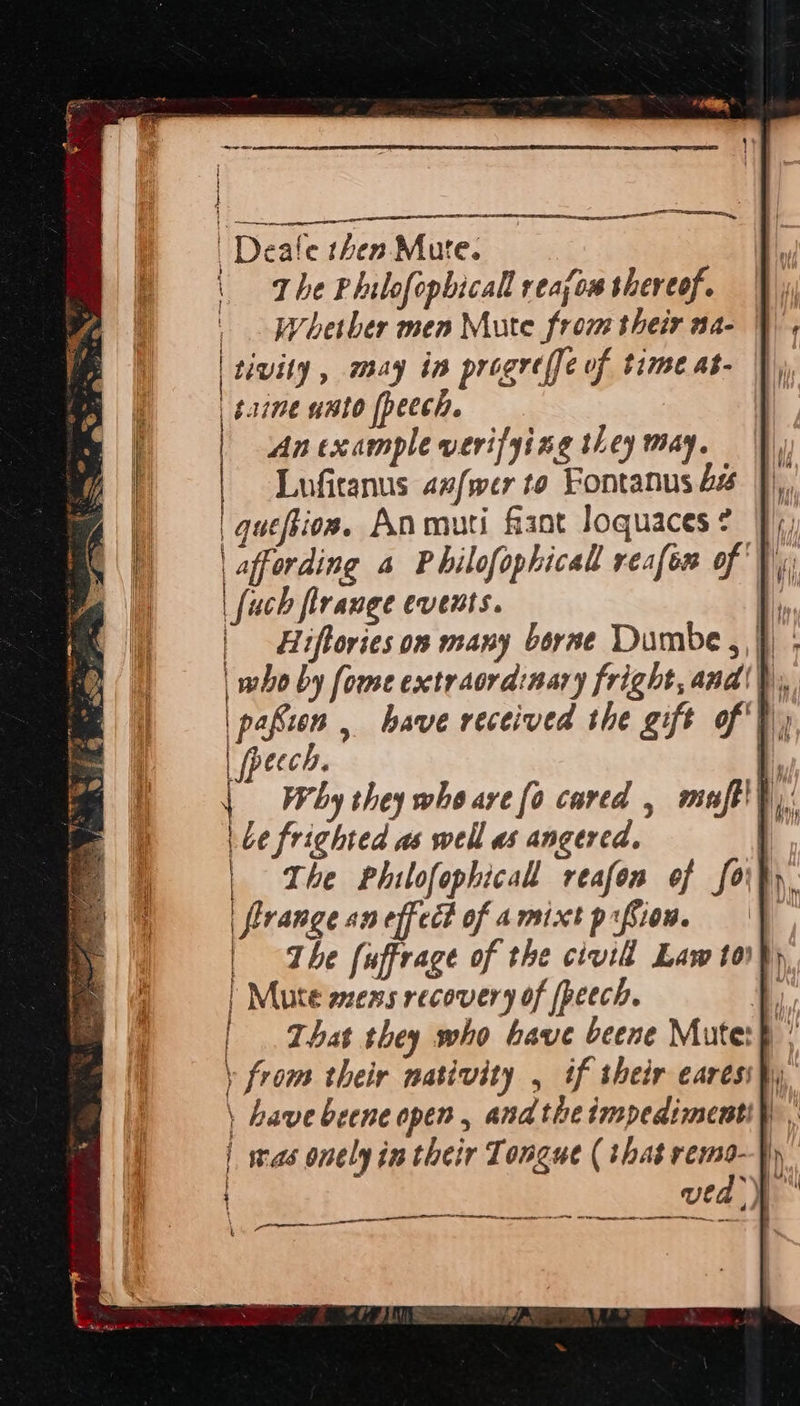 Deafe then Mute.
The Philoſophicall reaſon thereof.
Whether men Mute from their na-
tivity, may in progreſſe of time at-
taine unto ſpeech.
An example verifying they may.
Luſitanus anſwer to Fontanus his
queſtion. An muti fiant loquaces?
affording a Philoſophicall reaſon of
ſuch ſtrange events.
Hiſtories on many borne Dumbe,
who by ſome extraordinary fright, and
paſsion, have received the gift of
ſpeech.
Why they who are ſo cured, muſt
be frighted as well as angered.
The Philoſophicall reaſon of ſo
ſtrange an effect of a mixt paſsion.
The ſuffrage of the civill Law to
Mute mens recovery of ſpeech.
That they who have beene Mute
from their nativity, if their eares
have beene open, and the impediment
was onely in their Tongue (that remo-
ved)